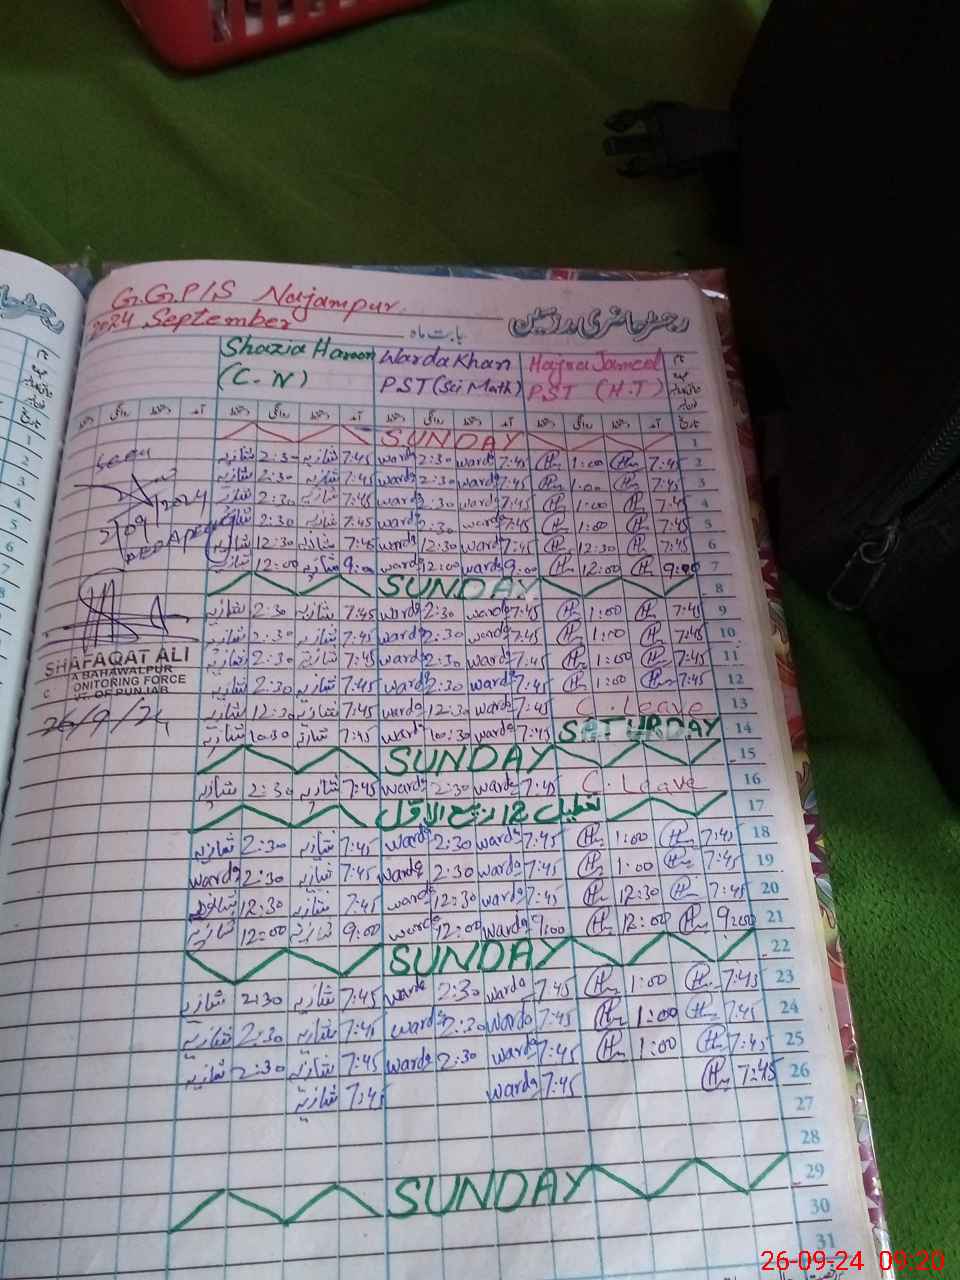 G.G.P/S Najampur.
2024 September بابت ماہ رجسٹر حاضری مدرسین
Shazia Haroon Warda Khan Hajra Jameel
(C.N) PST (Sci Math) PST (H.T)
SUNDAY 1
شازیہ 2:30 شازیہ 7:45 warda 2:30 warda 7:45 1:00 7:45 2
شازیہ 2:30 شازیہ 7:45 warda 2:30 warda 7:45 1:00 7:45 3
شازیہ 2:30 شازیہ 7:45 warda 2:30 warda 7:45 1:00 7:45 4
شازیہ 2:30 شازیہ 7:45 warda 2:30 warda 7:45 1:00 7:45 5
شازیہ 12:30 شازیہ 7:45 warda 12:30 warda 7:45 12:30 7:45 6
شازیہ 12:00 شازیہ 9:00 warda 12:00 warda 9:00 12:00 9:00 7
SUNDAY 8
شازیہ 2:30 شازیہ 7:45 warda 2:30 warda 7:45 1:00 7:45 9
شازیہ 2:30 شازیہ 7:45 warda 2:30 warda 7:45 1:00 7:45 10
شازیہ 2:30 شازیہ 7:45 warda 2:30 warda 7:45 1:00 7:45 11
شازیہ 2:30 شازیہ 7:45 warda 2:30 warda 7:45 1:00 7:45 12
شازیہ 12:30 شازیہ 7:45 warda 12:30 warda 7:45 C. Leave 13
شازیہ 10:30 شازیہ 7:45 warda 10:30 warda 7:45 SATURDAY 14
SUNDAY 15
شازیہ 2:30 شازیہ 7:45 warda 2:30 warda 7:45 C. Leave 16
تعطیل 12 ربیع الاول 17
شازیہ 2:30 شازیہ 7:45 warda 2:30 warda 7:45 1:00 7:45 18
warda 2:30 شازیہ 7:45 warda 2:30 warda 7:45 1:00 7:45 19
شازیہ 12:30 شازیہ 7:45 warda 12:30 warda 7:45 12:30 7:45 20
شازیہ 12:00 شازیہ 9:00 warda 12:00 warda 9:00 12:00 9:00 21
SUNDAY 22
شازیہ 2:30 شازیہ 7:45 warda 2:30 warda 7:45 1:00 7:45 23
شازیہ 2:30 شازیہ 7:45 warda 2:30 warda 7:45 1:00 7:45 24
شازیہ 2:30 شازیہ 7:45 warda 2:30 warda 7:45 1:00 7:45 25
شازیہ 7:45 warda 7:45 7:45 26
27
28
SUNDAY 29
30
31
SHAFAQAT ALI
A BAHAWALPUR
ONITORING FORCE
VT. OF PUNJAB
26/9/24
26-09-24 09:20